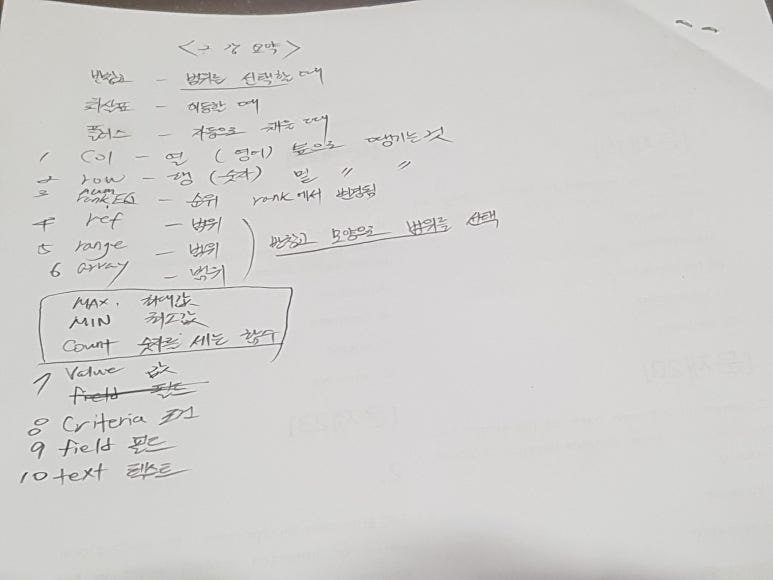 <2강 요약>
반창고 - 범위를 선택할 때
화살표 - 이동할 때
플러스 - 자동으로 채울 때
1 col - 열 (영어) 옆으로 땡기는 것
2 row - 행 (숫자) 밑 " "
3 num
rank.EQ - 순위 rank에서 변경됨
4 ref - 범위
5 range - 범위 반창고 모양으로 범위를 선택
6 array - 범위
MAX. 최대값
MIN 최소값
Count 숫자를 세는 함수
7 Value 값
field 필드
8 Criteria 조건
9 field 필드
10 text 텍스트